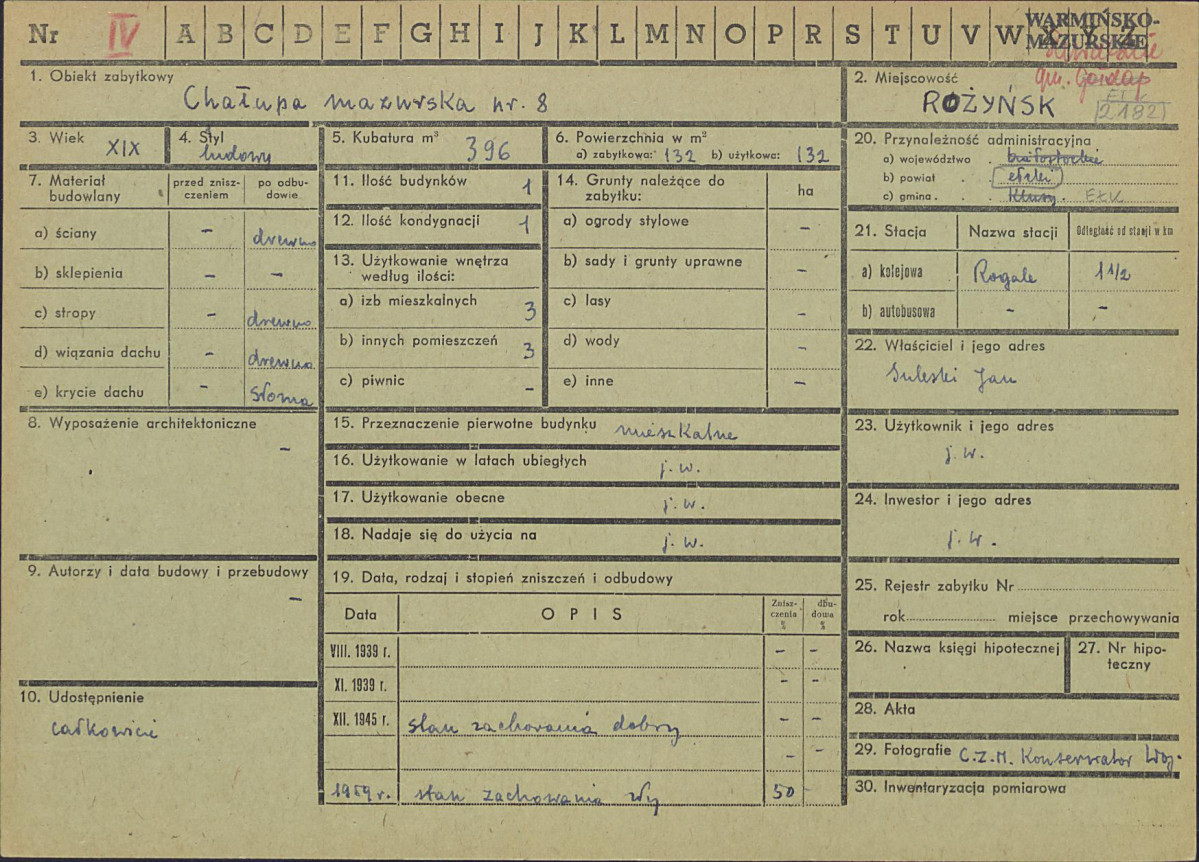 Nr IV A B C D E F G H I J K L M N O P R S T U V W X Y Z
WARMIŃSKO-
MAZURSKIE
gm. Gołdap
1. Obiekt zabytkowy
Chałupa mazurska nr. 8
2. Miejscowość
ROŻYŃSK
2182
3. Wiek XIX
4. Styl
ludowy
5. Kubatura m³ 396
6. Powierzchnia w m²
a) zabytkowa: 132 b) użytkowa: 132
7. Materiał budowlany
przed zniszczeniem
po odbudowie
a) ściany - drewno
b) sklepienia - -
c) stropy - drewno
d) wiązania dachu - drewno
e) krycie dachu - słoma
8. Wyposażenie architektoniczne
-
9. Autorzy i data budowy i przebudowy
-
10. Udostępnienie
całkowicie
11. Ilość budynków 1
12. Ilość kondygnacji 1
13. Użytkowanie wnętrza
według ilości:
a) izb mieszkalnych 3
b) innych pomieszczeń 3
c) piwnic -
14. Grunty należące do
zabytku:
ha
a) ogrody stylowe -
b) sady i grunty uprawne -
c) lasy -
d) wody -
e) inne -
15. Przeznaczenie pierwotne budynku mieszkalne
16. Użytkowanie w latach ubiegłych j. w.
17. Użytkowanie obecne j. w.
18. Nadaje się do użycia na j. w.
19. Data, rodzaj i stopień zniszczeń i odbudowy
Data OPIS Zniszczenia % dbudowa %
VIII. 1939 r. - -
XI. 1939 r. - -
XII. 1945 r. stan zachowania dobry - -
- -
1959 r. stan zachowania zły 50 -
20. Przynależność administracyjna
a) województwo . białostockie
b) powiat . . ełcki
c) gmina . . . Klusy. EŁK
21. Stacja Nazwa stacji Odległość od stacji w km
a) kolejowa Rogale 1 1/2
b) autobusowa - -
22. Właściciel i jego adres
Suleski Jan
23. Użytkownik i jego adres
j. w.
24. Inwestor i jego adres
j. w.
25. Rejestr zabytku Nr
rok miejsce przechowywania
26. Nazwa księgi hipotecznej
27. Nr hipoteczny
28. Akta
29. Fotografie C.Z.M. Konserwator Woj.
30. Inwentaryzacja pomiarowa